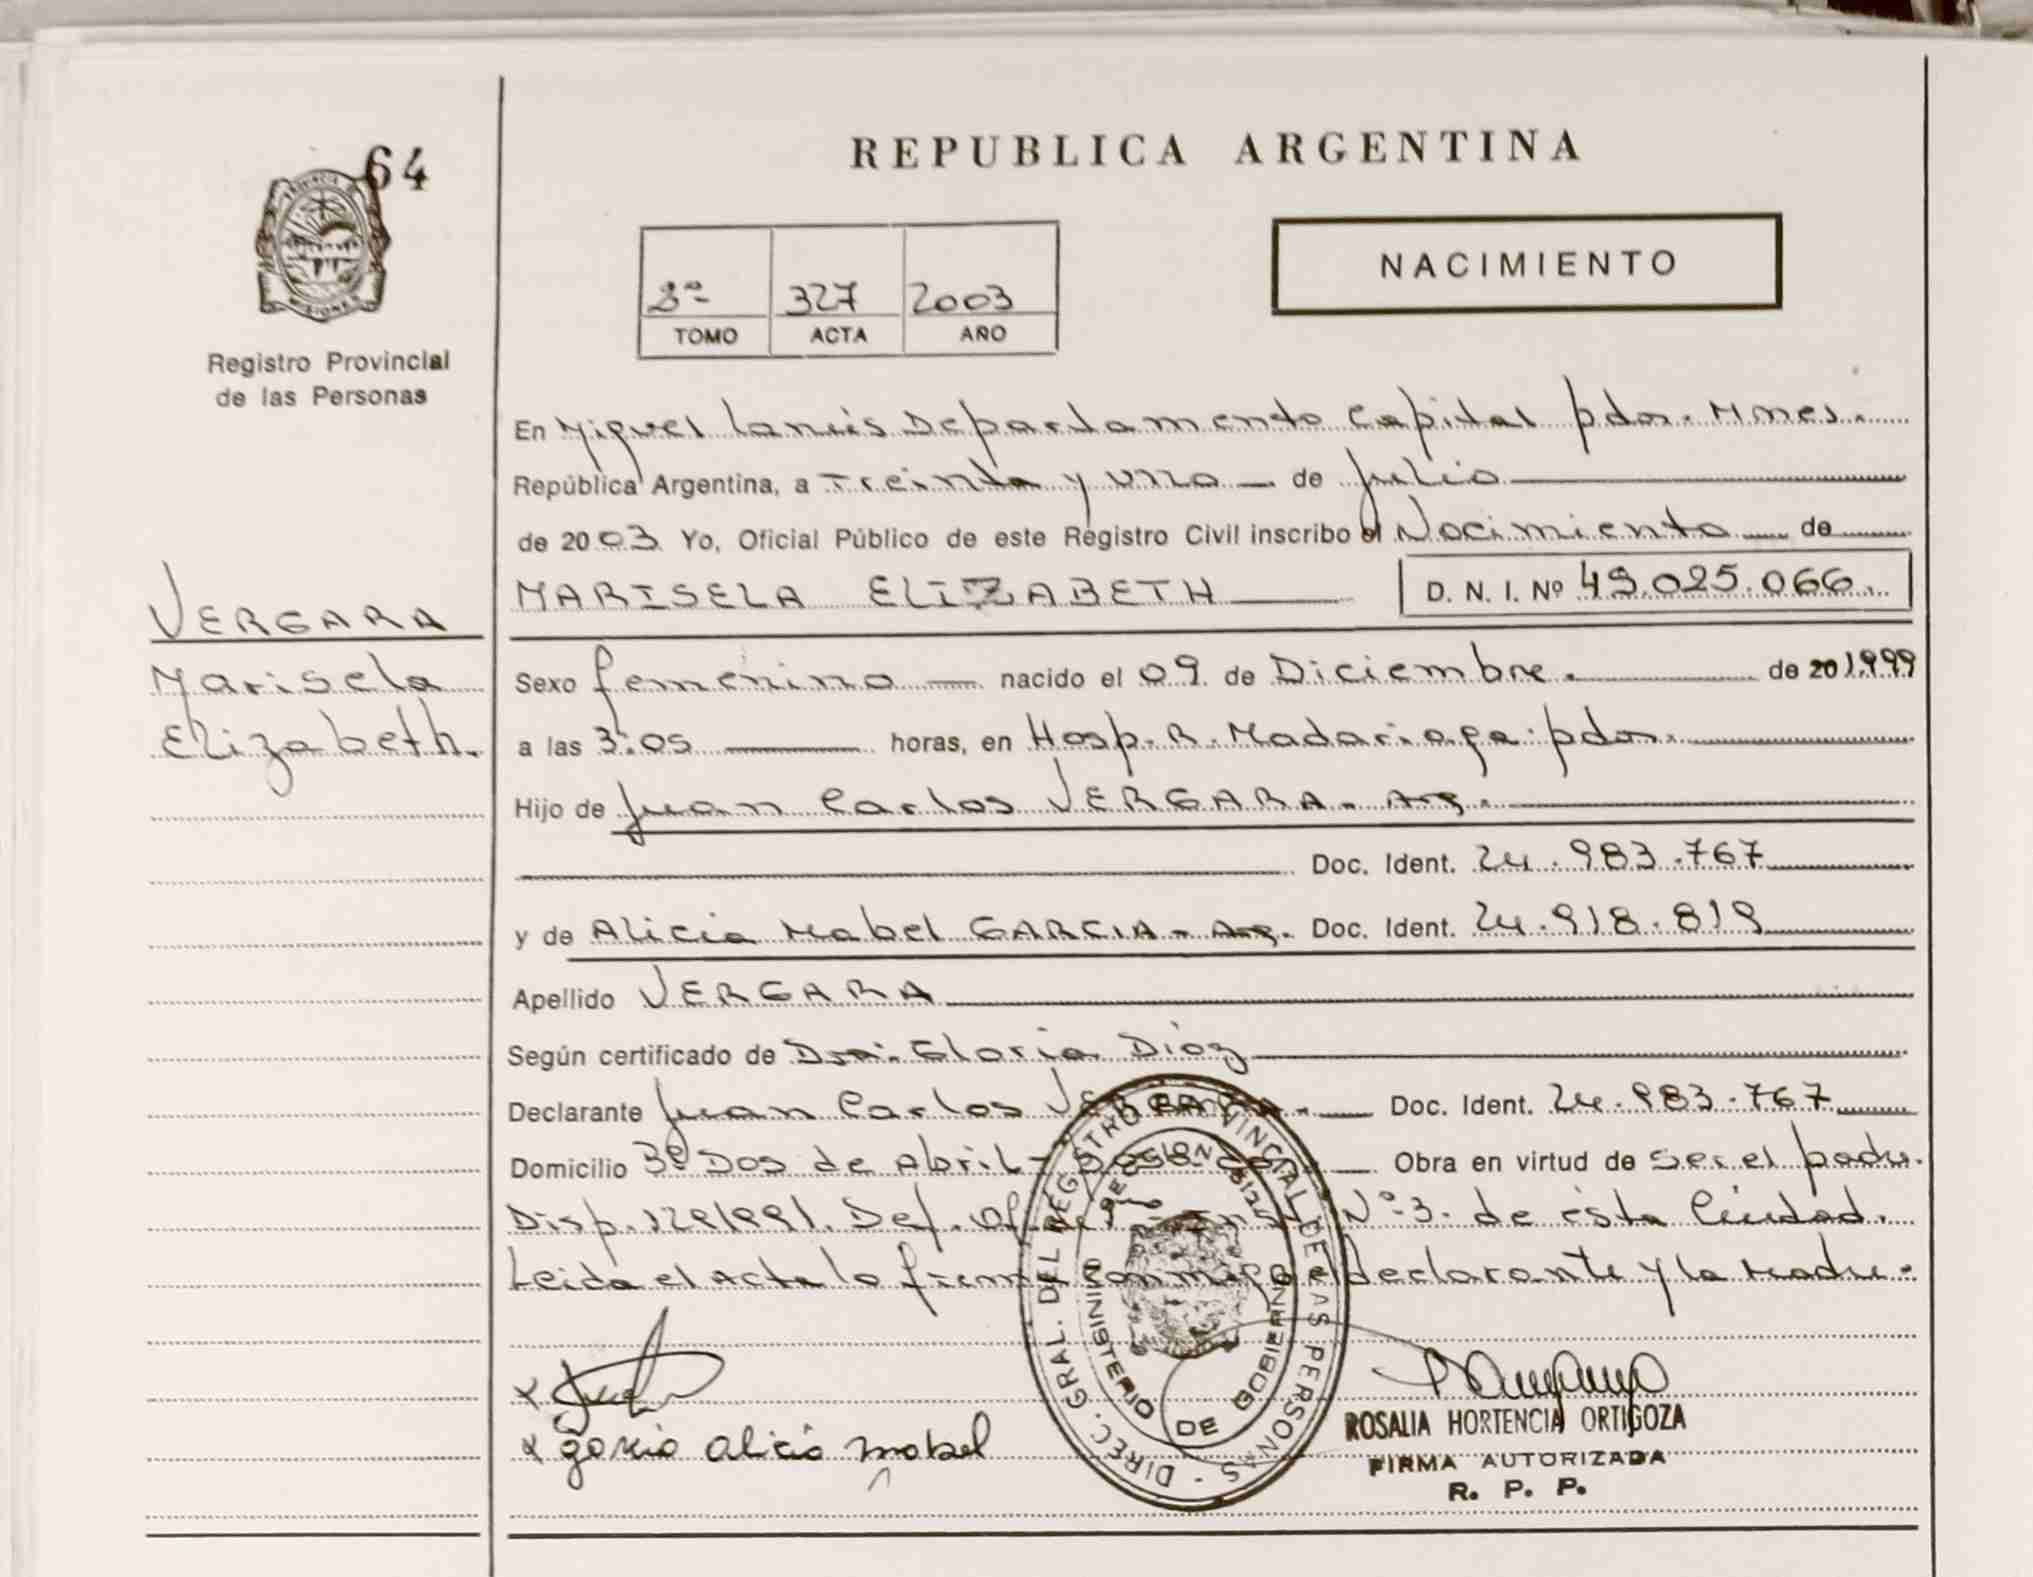 64
REPUBLICA ARGENTINA
NACIMIENTO
327 2003
TOMO ACTA AÑO
PROVINCIA DE MISIONES
Registro Provincial
de las Personas
En Miguel Lanús Departamento Capital pdas. Mnes.
República Argentina, a Treinta y uno de Julio
de 2003 Yo, Oficial Público de este Registro Civil inscribo el Nacimiento de
MARISELA ELIZABETH D. N. I. Nº 49.025.066
VERGARA
Marisela
Elizabeth.
Sexo femenino nacido el 09 de Diciembre. de 201999
a las 3:05 horas, en Hosp. R. Madariaga. pdas.
Hijo de Juan Carlos VERGARA - Arg.
Doc. Ident. 24.983.767
y de Alicia Mabel GARCIA - Arg. Doc. Ident. 24.918.819
Apellido VERGARA
Según certificado de Dra. Gloria Díaz
Declarante Juan Carlos VERGARA. Doc. Ident. 24.983.767
Domicilio Dos de Abril Obra en virtud de ser el padre.
Disp. Def. Of. Nº 3 de ésta Ciudad.
Leida el Acta lo firma conmigo el declarante y la Madre.
DIREC. GRAL. DEL REGISTRO PROVINCIAL DE LAS PERSONAS
MINISTERIO DE GOBIERNO
garcia alicia mabel
ROSALIA HORTENCIA ORTIGOZA
FIRMA AUTORIZADA
R. P. P.